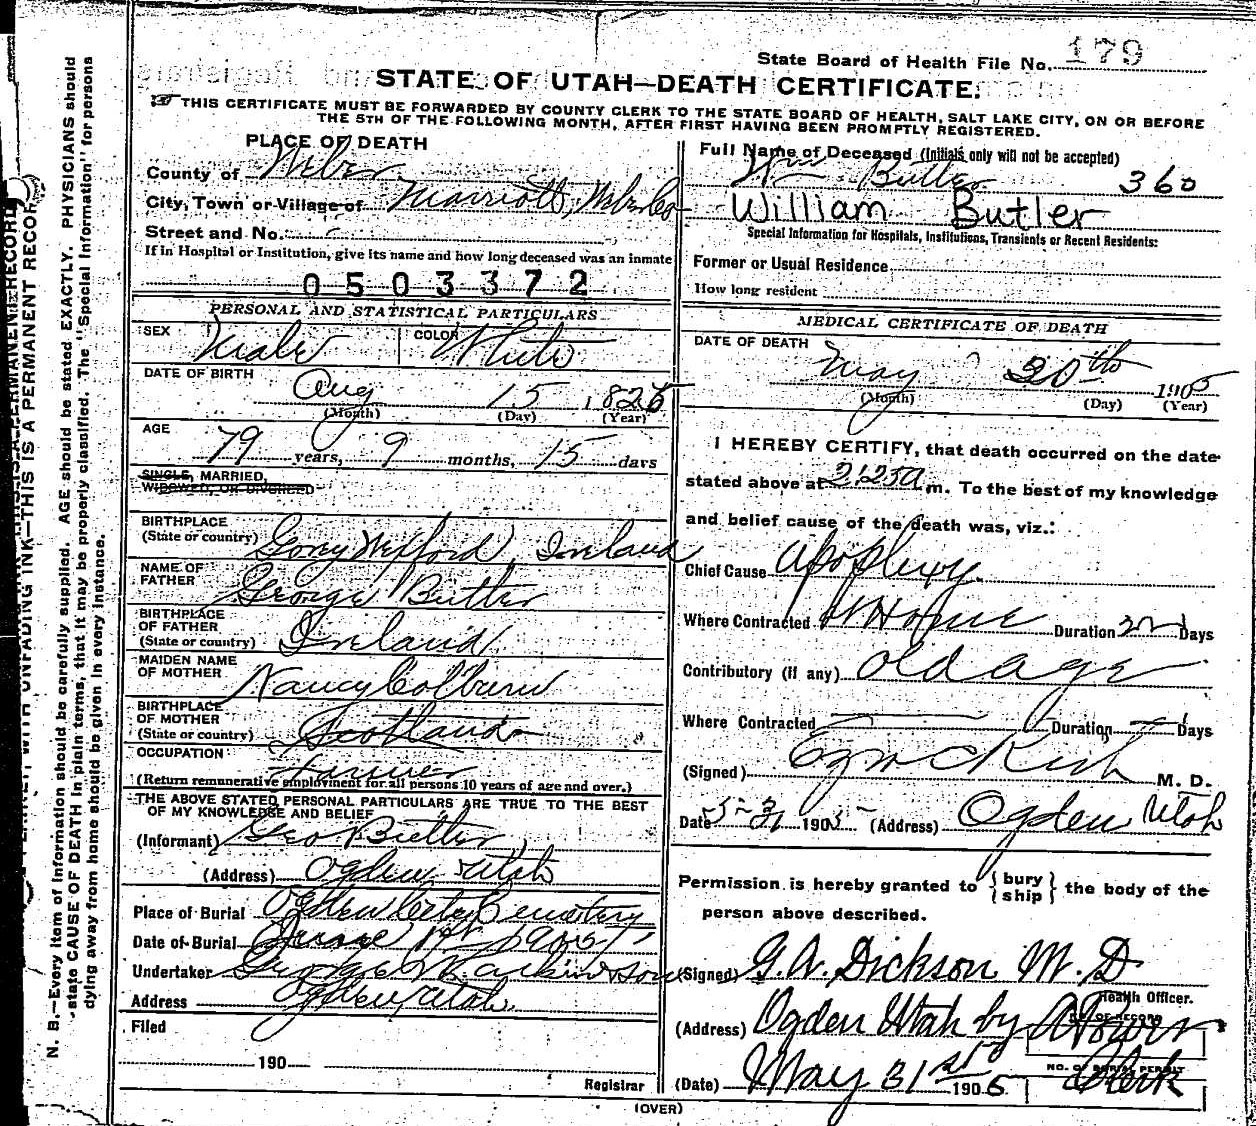 State Board of Health File No. 179
STATE OF UTAH—DEATH CERTIFICATE.
THIS CERTIFICATE MUST BE FORWARDED BY COUNTY CLERK TO THE STATE BOARD OF HEALTH, SALT LAKE CITY, ON OR BEFORE
THE 5TH OF THE FOLLOWING MONTH, AFTER FIRST HAVING BEEN PROMPTLY REGISTERED.
PLACE OF DEATH
County of Weber
City, Town or Village of Marriott, Weber Co
Street and No.
If in Hospital or Institution, give its name and how long deceased was an inmate
0503372
PERSONAL AND STATISTICAL PARTICULARS
SEX Male COLOR White
DATE OF BIRTH Aug 15 1825
(Month) (Day) (Year)
AGE 79 years, 9 months, 15 days
SINGLE, MARRIED,
WIDOWED, OR DIVORCED
BIRTHPLACE
(State or country) Gorey Wexford, Ireland
NAME OF
FATHER George Butler
BIRTHPLACE
OF FATHER
(State or country) Ireland
MAIDEN NAME
OF MOTHER Nancy
BIRTHPLACE
OF MOTHER
(State or country) Scotland
OCCUPATION Farmer
(Return remunerative employment for all persons 10 years of age and over.)
THE ABOVE STATED PERSONAL PARTICULARS ARE TRUE TO THE BEST
OF MY KNOWLEDGE AND BELIEF
(Informant) Geo Butler
(Address) Ogden Utah
Place of Burial Ogden City Cemetery
Date of Burial June 1st 1905
Undertaker George W Larkin & Sons
Address Ogden, Utah
Filed
190
Registrar
Full Name of Deceased (Initials only will not be accepted)
Wm Butler 360
William Butler
Special Information for Hospitals, Institutions, Transients or Recent Residents:
Former or Usual Residence
How long resident
MEDICAL CERTIFICATE OF DEATH
DATE OF DEATH
May 30th 1905
(Month) (Day) (Year)
I HEREBY CERTIFY, that death occurred on the date
stated above at 2:25 a m. To the best of my knowledge
and belief cause of the death was, viz.:
Chief Cause Apoplexy
Where Contracted At Home Duration Days
Contributory (if any) old age
Where Contracted Duration Days
(Signed) Ezra C Rich M. D.
Date 5-31 1905 (Address) Ogden Utah
Permission is hereby granted to { bury ship } the body of the
person above described.
(Signed) G. A. Dickson M. D
Health Officer.
(Address) Ogden Utah by
Clerk
(Date) May 31st 1905
(OVER)
N. B.—Every item of information should be carefully supplied. AGE should be stated EXACTLY. PHYSICIANS should
state CAUSE OF DEATH in plain terms, that it may be properly classified. The "Special Information" for persons
dying away from home should be given in every instance.
WITH UNFADING INK—THIS IS A PERMANENT RECORD